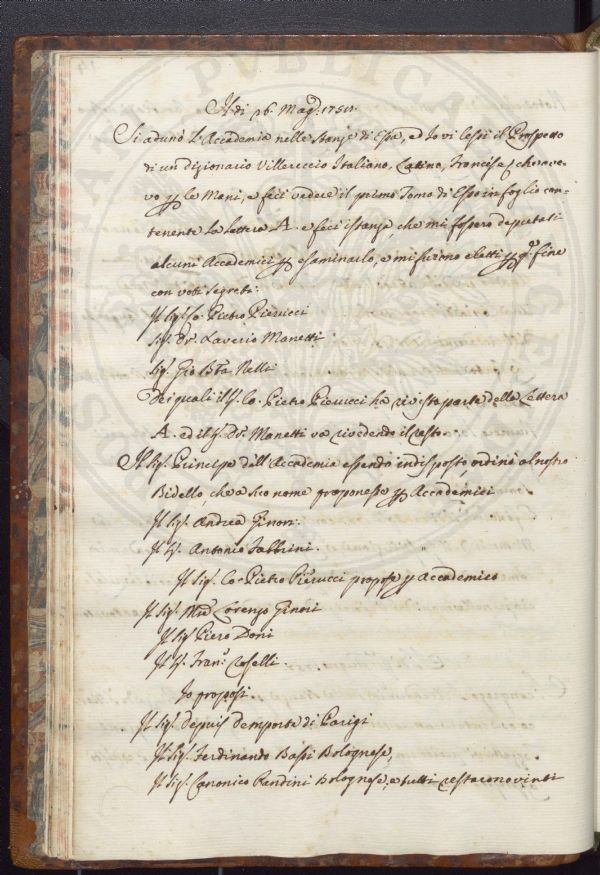 A dì 26. Magg.º 1751.
Si adunò L'Accademia nelle stanze di Essa, ed Io vi lessi il Prospetto
di un dizionario Villereccio Italiano, Latino, Francese, che aveve-
vo p le Mani, e feci vedere il primo Tomo di Esso in foglio con-
tenente La Lettera A. e feci istanza, che mi fossero deputati
alcuni Accademici p esaminarlo, e mi furono eletti p q.º fine
con voti segreti:
Il Sig.r Co. Pietro Pierucci
Sig.r D.r Saverio Manetti
Sig.r Gio Bta Nelli
De quali il S.r Co. Pietro Pierucci ha rivista parte della Lettera
A. ed il S.r D.r Manetti va rivedendo il resto.
Il Sig.r Principe dell'Accademia essendo indisposto, ordinò al nostro
Bidello, che a suo nome proponesse p Accademici
Il Sig.r Andrea Ginori.
Il S.r Antonio Fabbrini.
Il Sig.r Co. Pietro Pierucci propose p Accademico
Il Sig.r Lorenzo Ginori
Il Sig.r Piero Doni
Il S.r Fran.º Coselli
Io proposi
Il Sig.r depuis demporte di Parigi
Il Sig.r Ferdinando Bassi Bolognese,
Il Sig.r Canonico Bolognese, e tutti restarono vinti